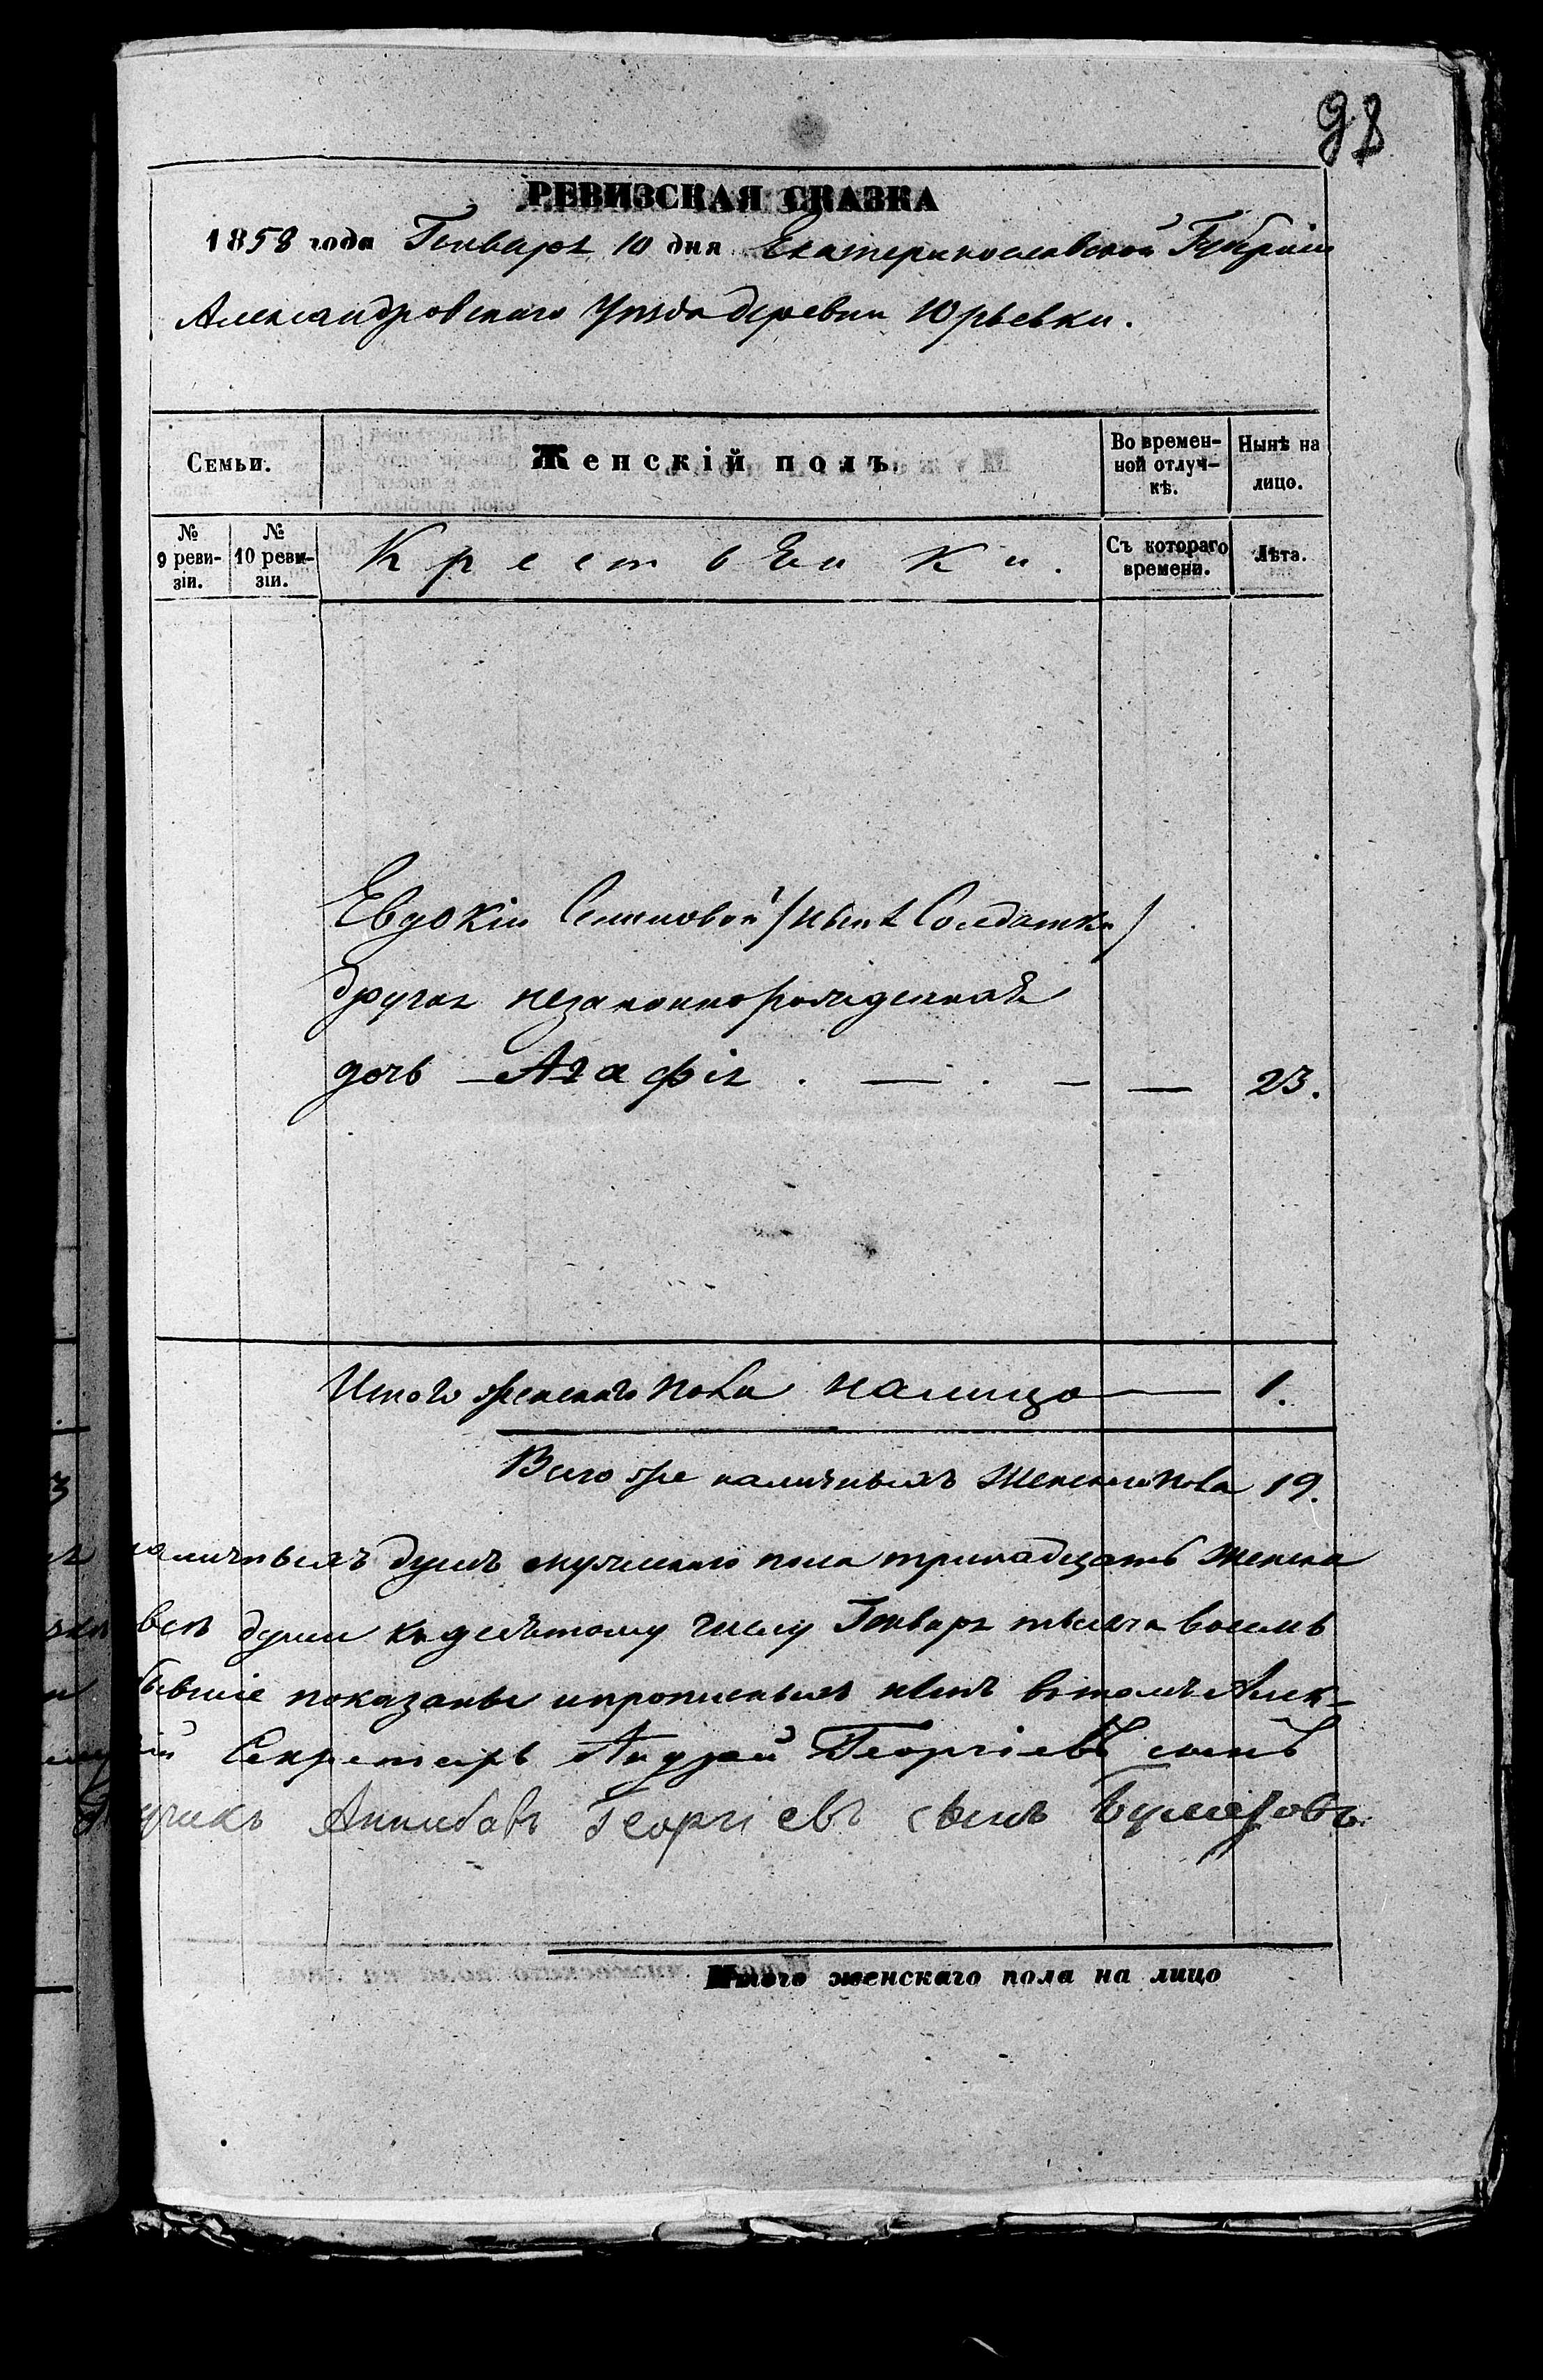 98
РЕВИЗСКАЯ СКАЗКА
1858 года Генваря 10 дня Екатеринославской Губерніи
Александровскаго Уѣзда деревни Юрьевки.
Семьи.
Женскій полъ.
Во времен-
ной отлуч-
кѣ.
Нынѣ на
лицо.
№
9 реви-
зіи.
№
10 реви-
зіи.
Крестьянки.
Съ котораго
времени.
Лѣта.
Евдокіи Семеновой /нынѣ Солдатки/
другая незаконнорожденная
дочь — Агафія . — . — — 23.
Итого женскаго пола налицо — 1.
Всего же наличныхъ женскаго пола 19.
наличныхъ душъ мужескаго пола тринадцать женска
всѣ души къ десятому числу Генваря тысяча восемь
бывшіе показаны ипрописныхъ нѣтъ вътомъ Алек-
Секретарь Андрей Георгіевъ сынъ
Георгіевъ сынъ
Итого женскаго пола на лицо